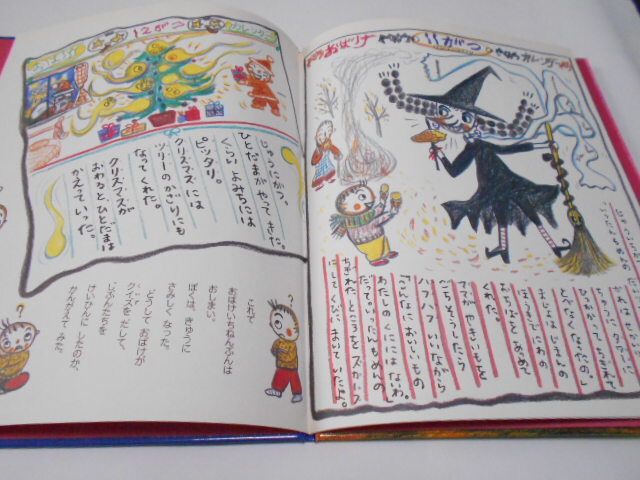 おばけ
11がつ
ほうきで にわの
おちばを あつめて
くれた。
ママが やきいもを
ごちそうしたら
ハフハフ いいながら
「こんなに おいしいもの
わたしの くにには ないわ。」
だって。いったんもめんの
ちぎれた ところを スカーフ
にして くびに まいていたよ。
12がつ
カレンダー
じゅうにがつ。
ひとだまが やってきた。
くらい よみちには
ピッタリ。
クリスマスには
ツリーの かざりにも
なってくれた。
クリスマスが
おわると ひとだまは
かえっていった。
これで
おばけいちねんぶんは
おしまい。
ぼくは きゅうに
さみしく なった。
どうして おばけが
クイズを だして、
じぶんたちを
けいひんに したのか、
かんがえて みた。